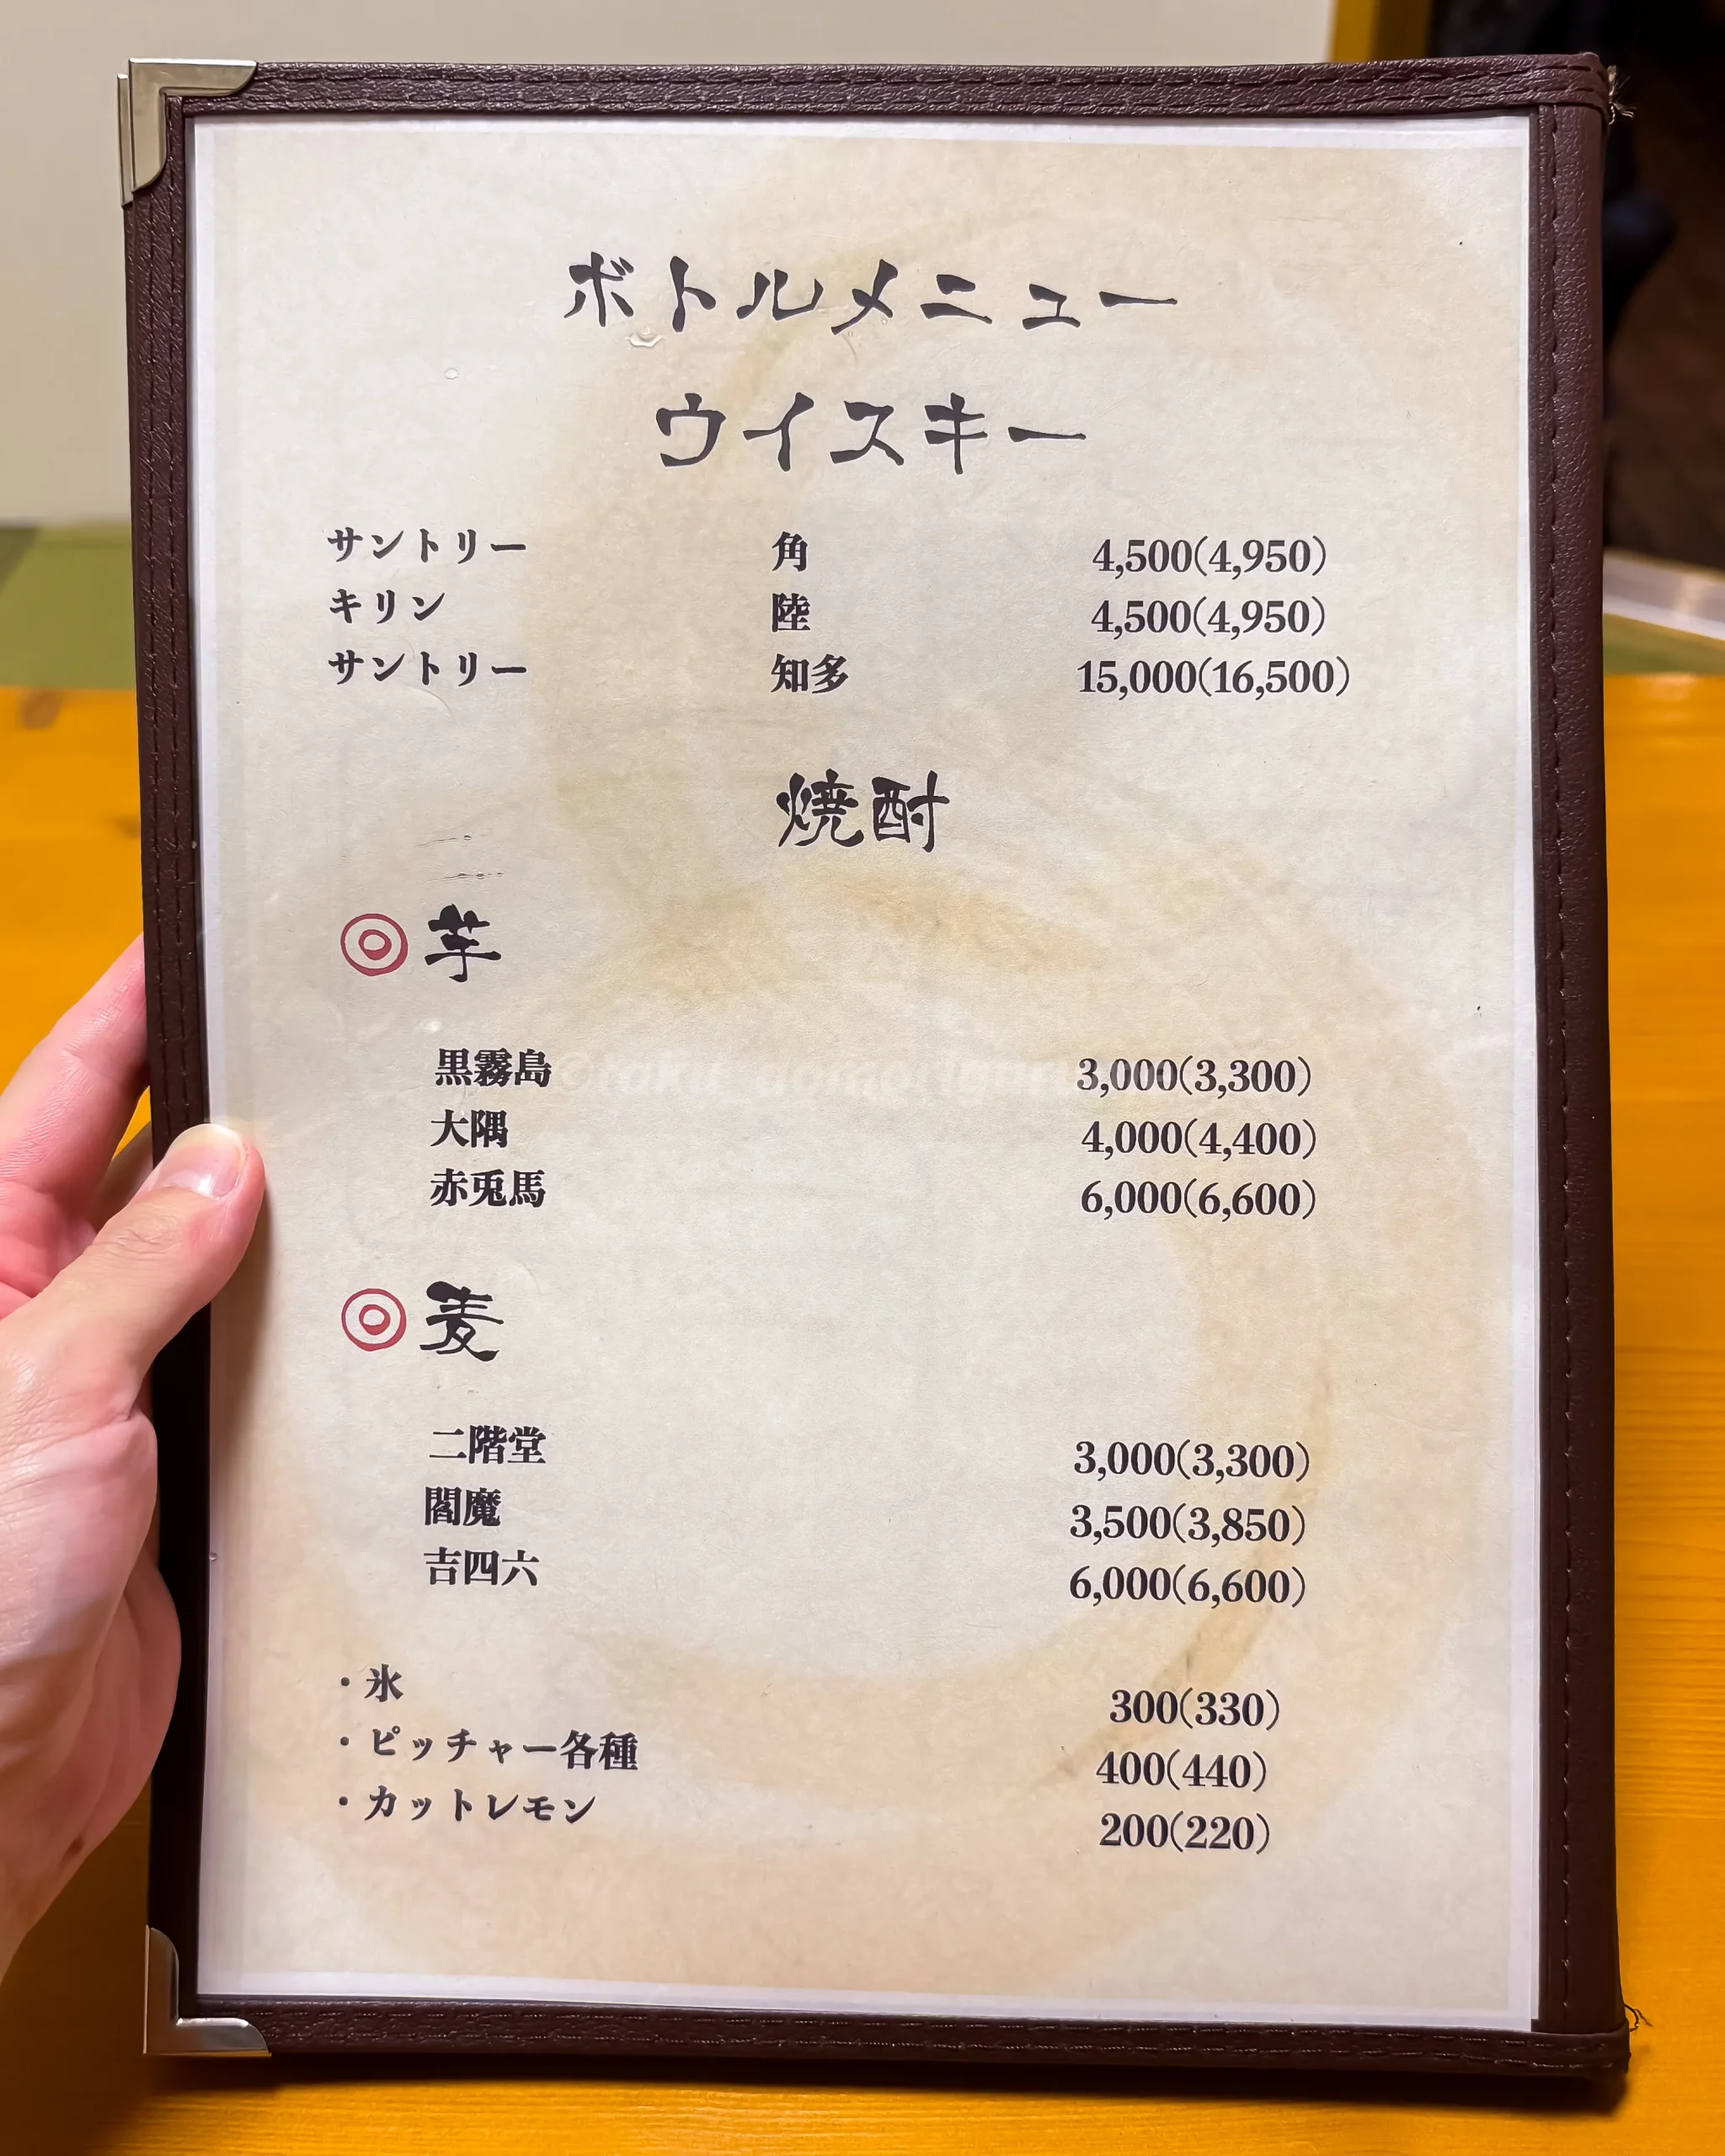 ボトルメニュー
ウイスキー
サントリー 角 4,500(4,950)
キリン 陸 4,500(4,950)
サントリー 知多 15,000(16,500)
焼酎
◎ 芋
黒霧島 3,000(3,300)
大隅 4,000(4,400)
赤兎馬 6,000(6,600)
◎ 麦
二階堂 3,000(3,300)
閻魔 3,500(3,850)
吉四六 6,000(6,600)
・氷 300(330)
・ピッチャー各種 400(440)
・カットレモン 200(220)